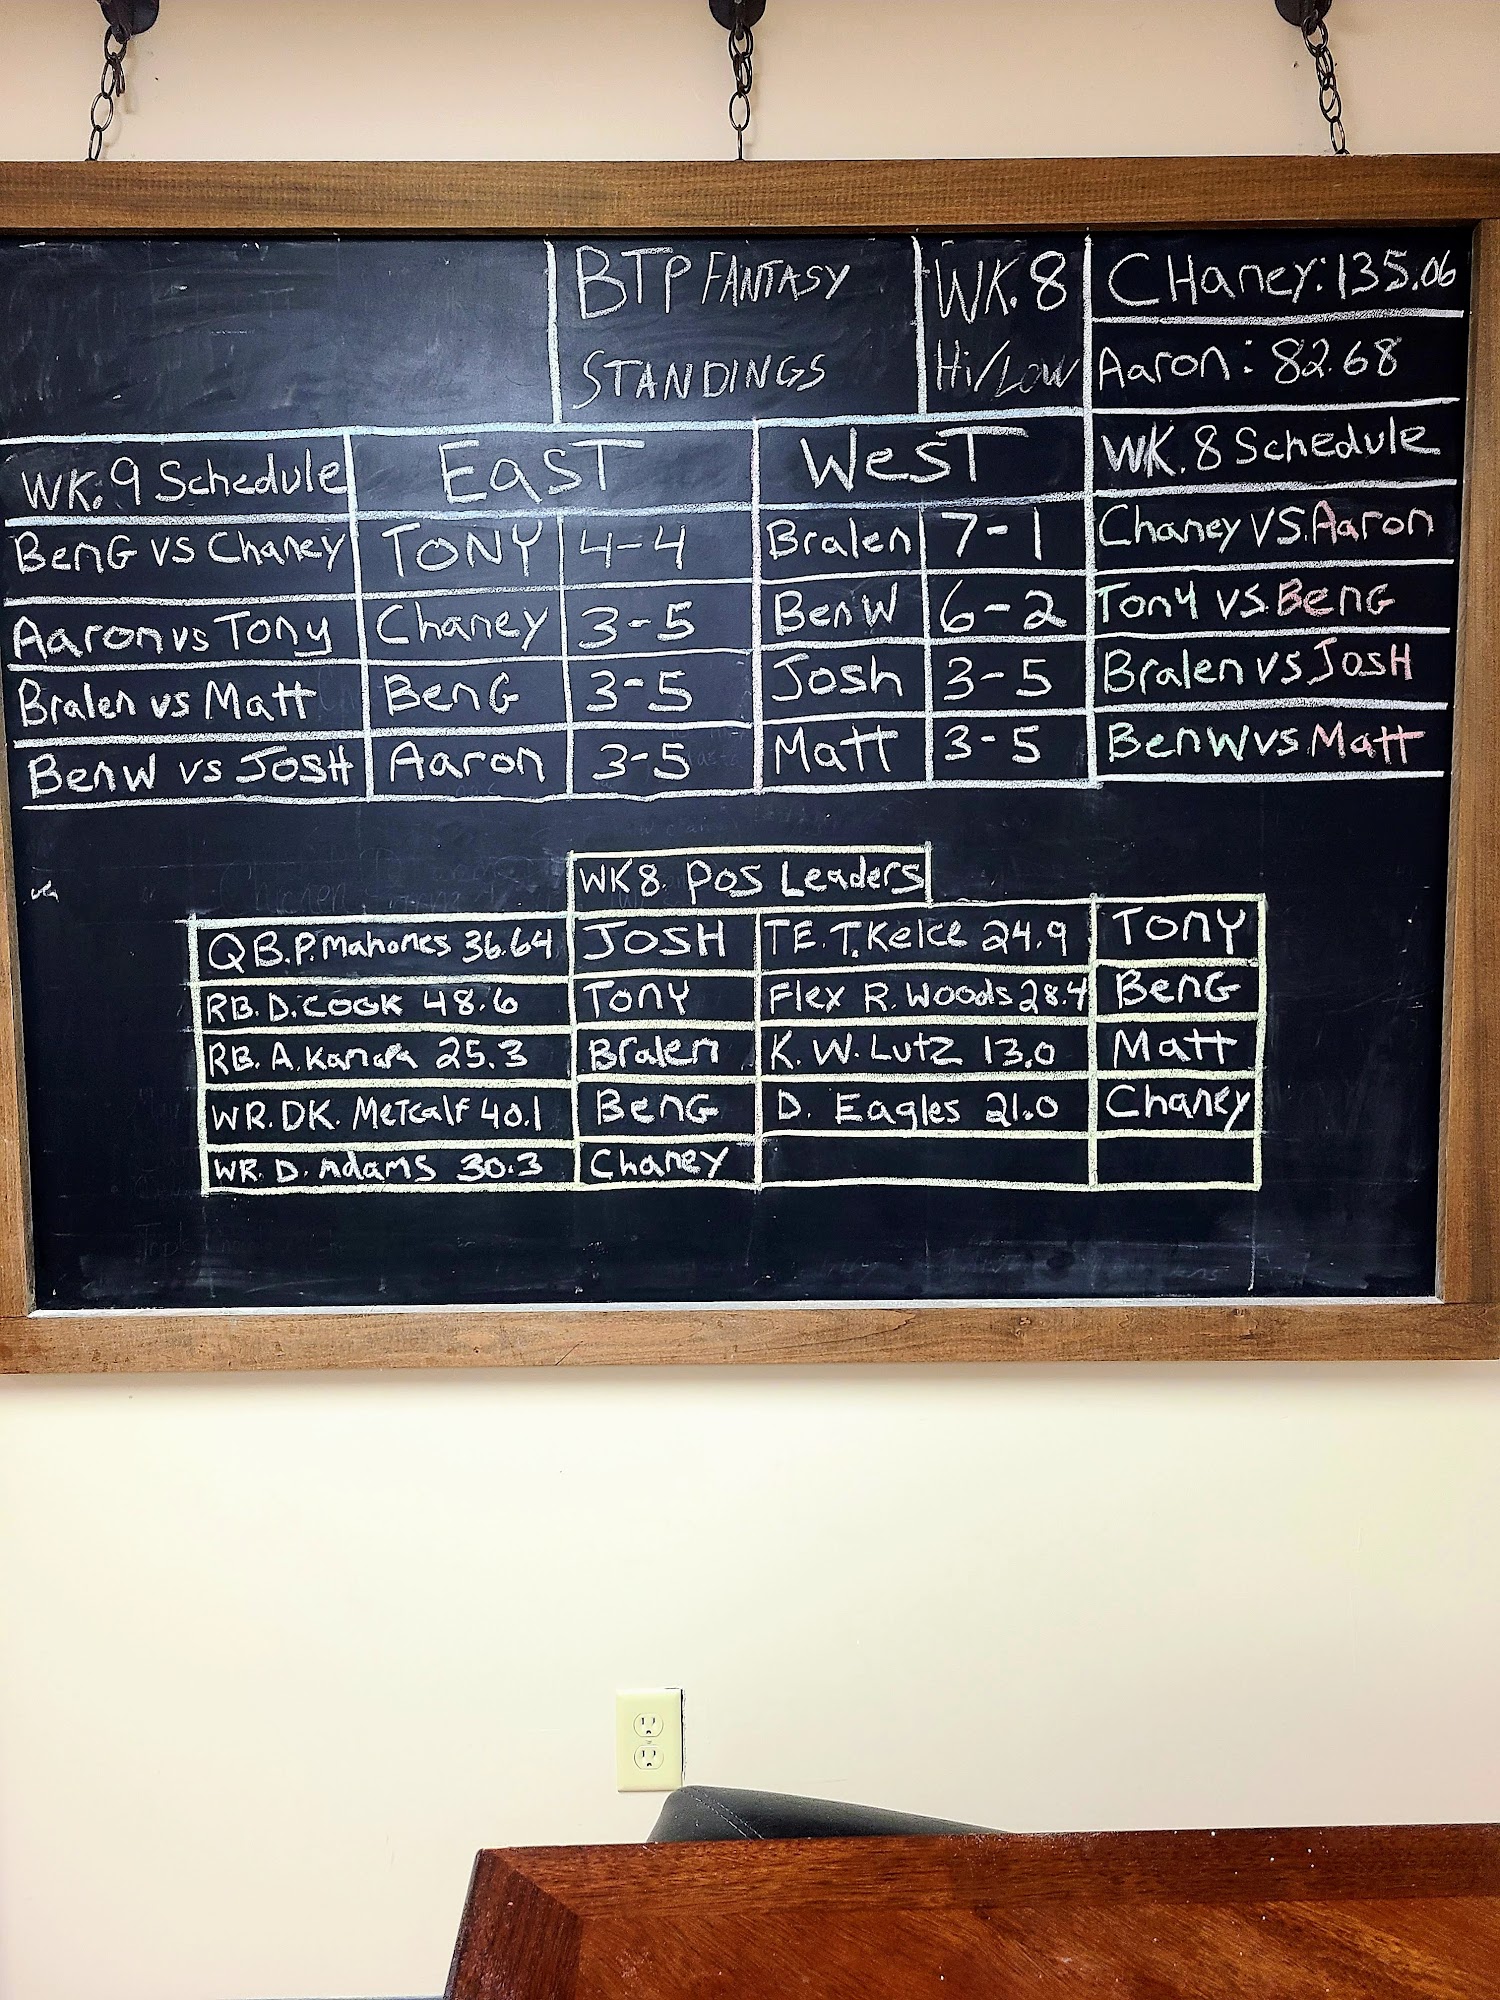 BTP FANTASY
STANDINGS
WK. 8
Hi/Low
CHaney: 135.06
Aaron: 82.68
WK. 9 Schedule
BenG vs Chaney
Aaron vs Tony
Bralen vs Matt
BenW vs JOSH
EasT
TONY 4-4
Chaney 3-5
BenG 3-5
Aaron 3-5
WesT
Bralen 7-1
BenW 6-2
Josh 3-5
Matt 3-5
WK. 8 Schedule
Chaney VS. Aaron
Tony vs. BenG
Bralen vs JosH
BenW vs Matt
WK8. Pos Leaders
QB. P. Mahomes 36.64 JOSH
RB. D. COOK 48.6 Tony
RB. A. Kamara 25.3 Bralen
WR. DK. Metcalf 40.1 BenG
WR. D. Adams 30.3 Chaney
TE. T. Kelce 24.9 Tony
Flex R. Woods 28.4 BenG
K. W. Lutz 13.0 Matt
D. Eagles 21.0 Chaney